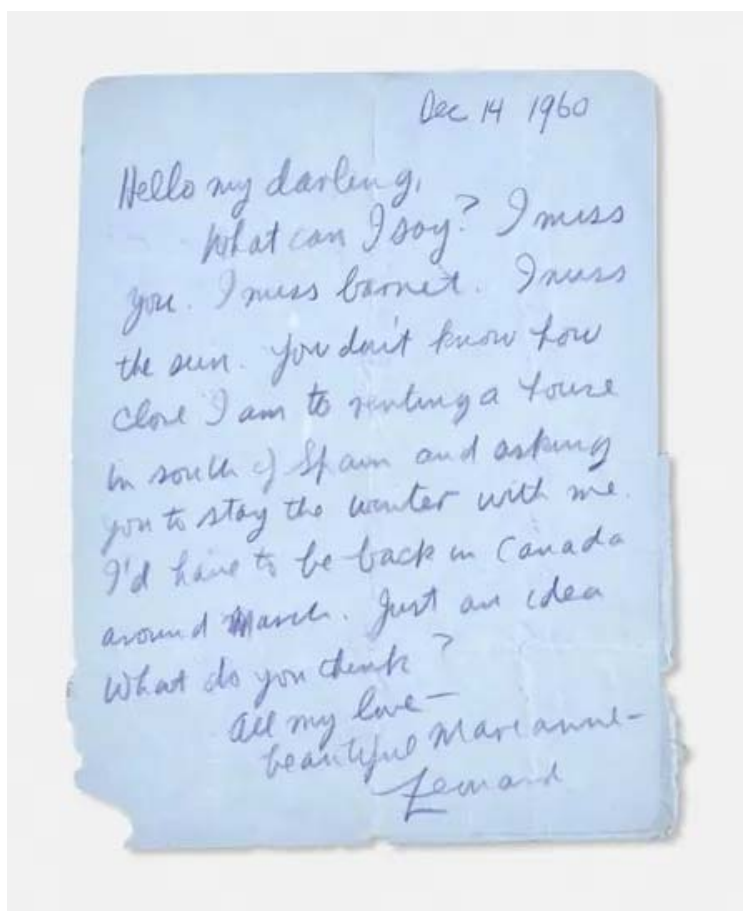 Dec 14 1960
Hello my darling,
What can I say? I miss
you. I miss barnet. I miss
the sun. You don't know how
close I am to renting a house
in south of Spain and asking
you to stay the winter with me.
I'd have to be back in Canada
around March. Just an idea
What do you think?
All my love—
beautiful Marianne—
Leonard